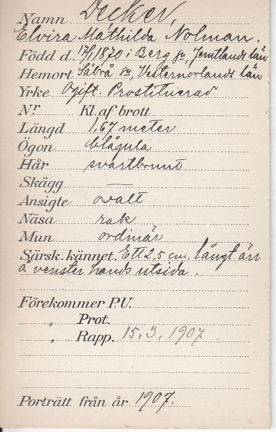 Namn Decker,
Elvira Mathilda Nolman.
Född d. 17/1 1870 i Berg sn, Jemtlands län
Hemort Säbrå sn, Vesternorlands län
Yrke Ogift. Prostituerad
Nr Kl. af brott
Längd 1,67 meter
Ögon blågula
Hår svartbrunt
Skägg —
Ansigte ovalt
Näsa rak
Mun ordinär
Särsk. kännet. Ett 2,5 cm. långt ärr
å venster hands utsida.
Förekommer P.U.
„ Prot.
„ Rapp. 15.3.1907
Porträtt från år 1907.